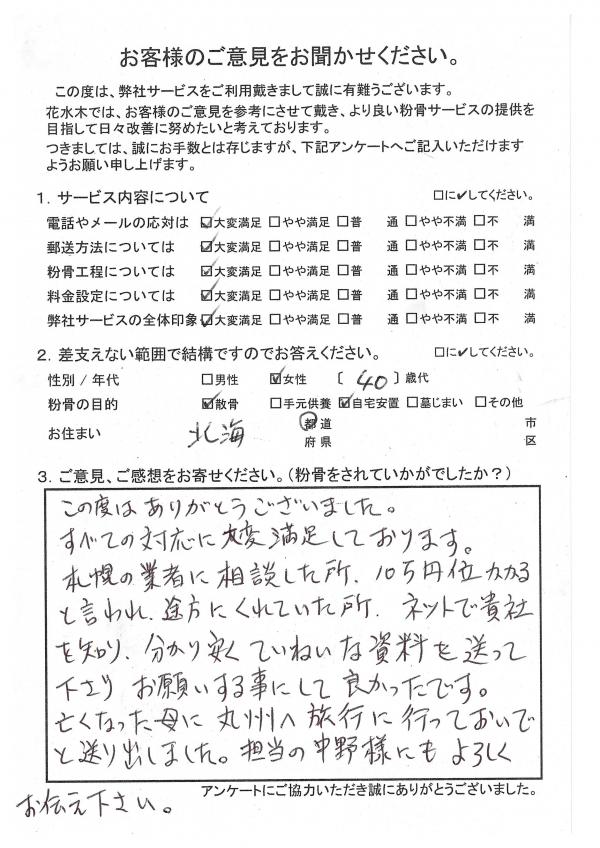 お客様のご意見をお聞かせください。
この度は、弊社サービスをご利用戴きまして誠に有難うございます。
花水木では、お客様のご意見を参考にさせて戴き、より良い粉骨サービスの提供を
目指して日々改善に努めたいと考えております。
つきましては、誠にお手数とは存じますが、下記アンケートへご記入いただけます
ようお願い申し上げます。
1．サービス内容について　□に✔してください。
電話やメールの応対は ☑大変満足 □やや満足 □普　通 □やや不満 □不　満
郵送方法については ☑大変満足 □やや満足 □普　通 □やや不満 □不　満
粉骨工程については ☑大変満足 □やや満足 □普　通 □やや不満 □不　満
料金設定については ☑大変満足 □やや満足 □普　通 □やや不満 □不　満
弊社サービスの全体印象 ☑大変満足 □やや満足 □普　通 □やや不満 □不　満
2．差支えない範囲で結構ですのでお答えください。　□に✔してください。
性別 / 年代　□男性 ☑女性 〔 40 〕歳代
粉骨の目的　☑散骨 □手元供養 ☑自宅安置 □墓じまい □その他
お住まい　北海　都道　市
府県　区
3．ご意見、ご感想をお寄せください。（粉骨をされていかがでしたか？）
この度はありがとうございました。
すべての対応に大変満足しております。
札幌の業者に相談した所、10万円位かかる
と言われ、途方にくれていた所、ネットで貴社
を知り、分かり安くていねいな資料を送って
下さり お願いする事にして良かったです。
亡くなった母に 九州へ旅行に行っておいで
と送り出しました。担当の中野様にもよろしく
お伝え下さい。
アンケートにご協力いただき誠にありがとうございました。